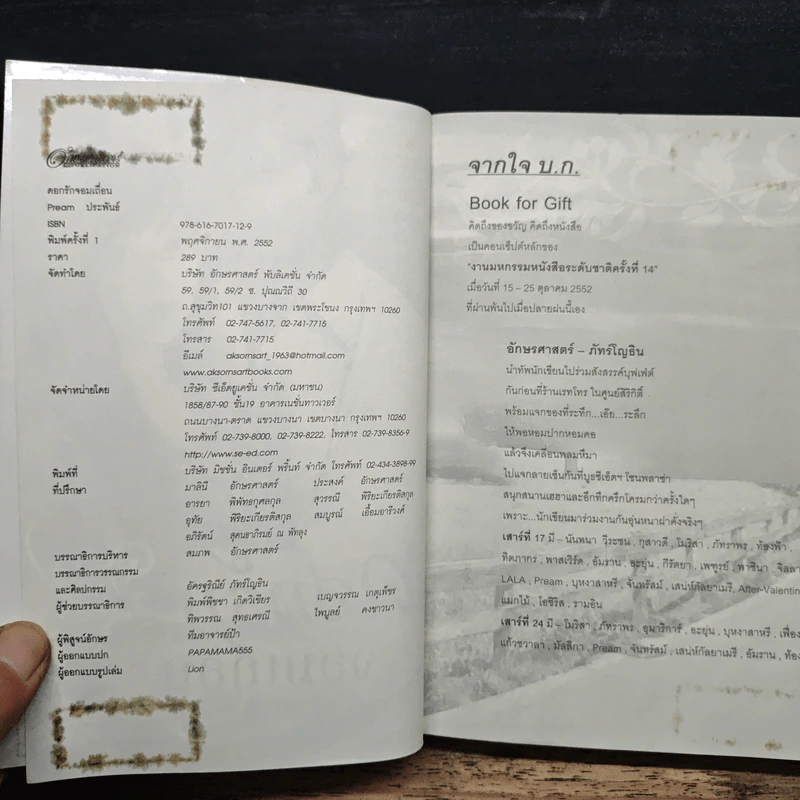 ดอกรักจอมเถื่อน
Pream ประพันธ์
ISBN 978-616-7017-12-9
พิมพ์ครั้งที่ 1 พฤศจิกายน พ.ศ. 2552
ราคา 289 บาท
จัดทำโดย บริษัท อักษรศาสตร์ พับลิเคชั่น จำกัด
59, 59/1, 59/2 ซ. ปุณณวิถี 30
ถ.สุขุมวิท101 แขวงบางจาก เขตพระโขนง กรุงเทพฯ 10260
โทรศัพท์ 02-747-5617, 02-741-7715
โทรสาร 02-741-7715
อีเมล์ aksornsart_1963@hotmail.com
www.aksornsartbooks.com
จัดจำหน่ายโดย บริษัท ซีเอ็ดยูเคชั่น จำกัด (มหาชน)
1858/87-90 ชั้น19 อาคารเนชั่นทาวเวอร์
ถนนบางนา-ตราด แขวงบางนา เขตบางนา กรุงเทพฯ 10260
โทรศัพท์ 02-739-8000, 02-739-8222, โทรสาร 02-739-8356-9
http://www.se-ed.com
พิมพ์ที่ บริษัท มิชชั่น อินเตอร์ พริ้นท์ จำกัด โทรศัพท์ 02-434-3898-99
ที่ปรึกษา มาลินี อักษรศาสตร์ ประสงค์ อักษรศาสตร์
อารยา พิพัทธกุศลกุล สุวรรณี พิริยะเกียรติสกุล
อุทัย พิริยะเกียรติสกุล สมบูรณ์ เอื้อมอารีวงศ์
อภิรัตน์ สุคนธาภิรมย์ ณ พัทลุง
สมภพ อักษรศาสตร์
บรรณาธิการบริหาร
บรรณาธิการวรรณกรรม
และศิลปกรรม อัครฐริณีย์ ภัทร์โญธิน
ผู้ช่วยบรรณาธิการ พิมพ์พิชชา เกิดวิเชียร เบญจวรรณ เกตุเพ็ชร
ทิพวรรณ สุทธเศรณี ไพบูลย์ คงขาวนา
ผู้พิสูจน์อักษร ทีมอาจารย์ป้า
ผู้ออกแบบปก PAPAMAMA555
ผู้ออกแบบรูปเล่ม Lion
จากใจ บ.ก.
Book for Gift
คิดถึงของขวัญ คิดถึงหนังสือ
เป็นคอนเซ็ปต์หลักของ
"งานมหกรรมหนังสือระดับชาติครั้งที่ 14"
เมื่อวันที่ 15 – 25 ตุลาคม 2552
ที่ผ่านพ้นไปเมื่อปลายฝนนี้เอง
อักษรศาสตร์ – ภัทร์โญธิน
นำทัพนักเขียนไปร่วมสังสรรค์บุฟเฟ่ต์
กันก่อนที่ร้านเรทโทร ในศูนย์สิริกิติ์
พร้อมแจกของที่ระทึก...เอ๊ย...ระลึก
ให้พอหอมปากหอมคอ
แล้วจึงเคลื่อนพลมหึมา
ไปแจกลายเซ็นกันที่บูธซีเอ็ดฯ โซนพลาซ่า
สนุกสนานเฮฮาและอึกทึกครึกโครมกว่าครั้งใดๆ
เพราะ...นักเขียนมาร่วมงานกันอุ่นหนาฝาคั่งจริงๆ
เสาร์ที่ 17 มี – นันทนา วีระชน , กุสาวดี , โมริสา , ภัทราพร , ท้องฟ้า ,
ทิตภากร , พาสเวิร์ด , อัมราน , อะยุ่น , กีรัตยา , เพฑูรย์ , พาซีนา , จิลลา
LALA , Pream , บุหงาสาหรี , จันทรัสม์ , เสน่ห์กัลยาเมรี , After-Valentin
แมกไม้ , โอชิริส , รามอิน
เสาร์ที่ 24 มี – โมริสา , ภัทราพร , อุมาริการ์ , อะยุ่น , บุหงาสาหรี , เฟื่อง
แก้วชวาลา , มัลลิกา , Pream , จันทรัสม์ , เสน่ห์กัลยาเมรี , อัมราน , ท้อง